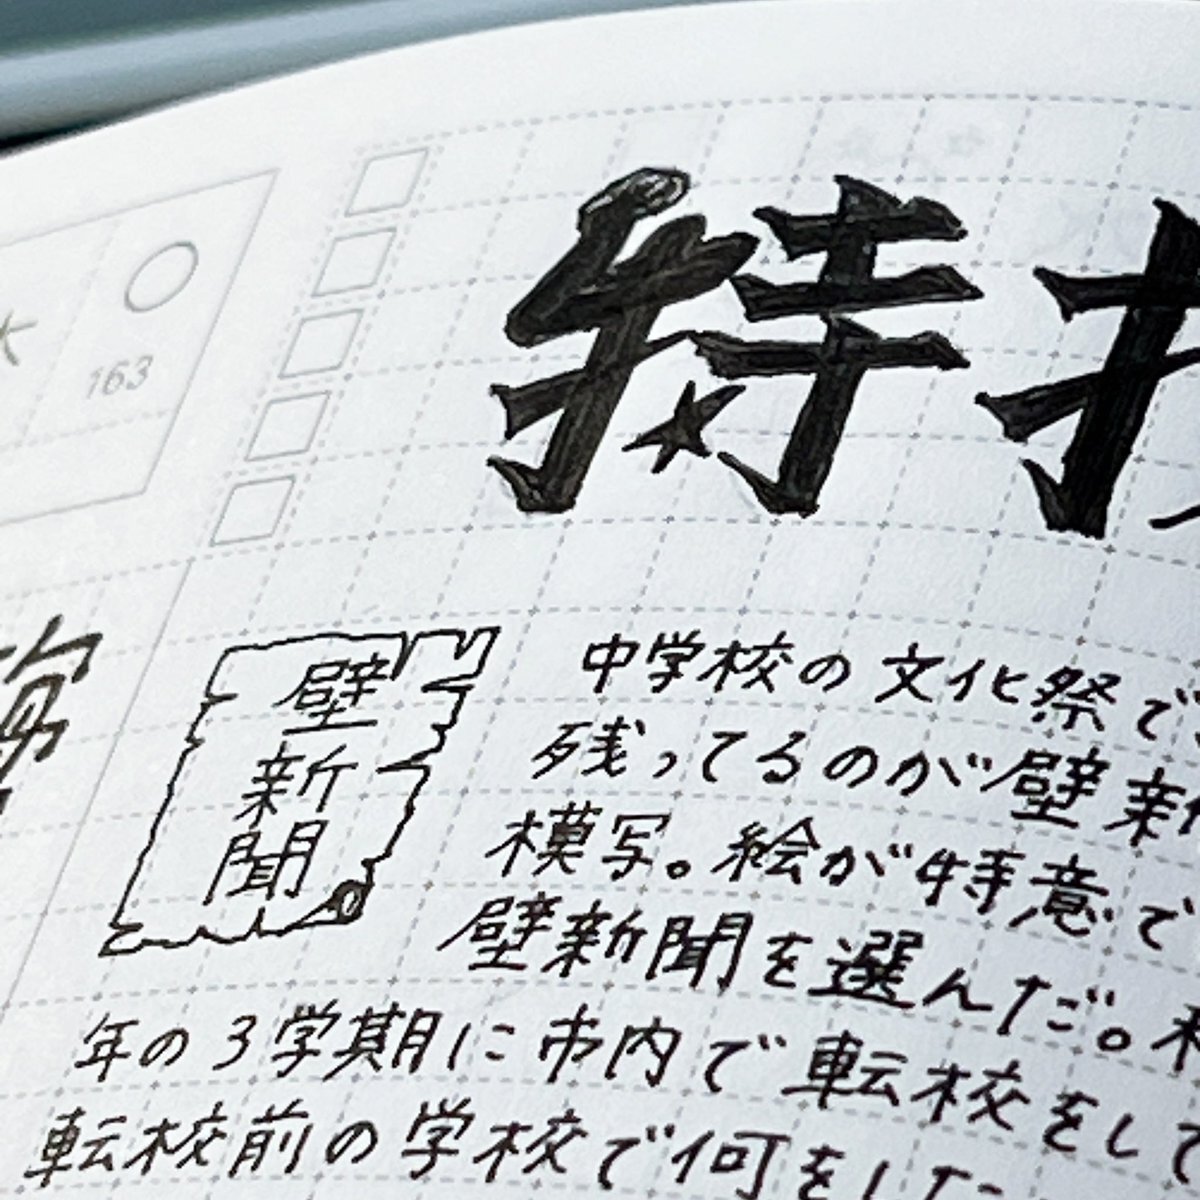 163
特
壁
新
聞
中学校の文化祭で
残ってるのが壁新
模写。絵が特意で
壁新聞を選んだ。
年の3学期に市内で転校をして
転校前の学校で何をした